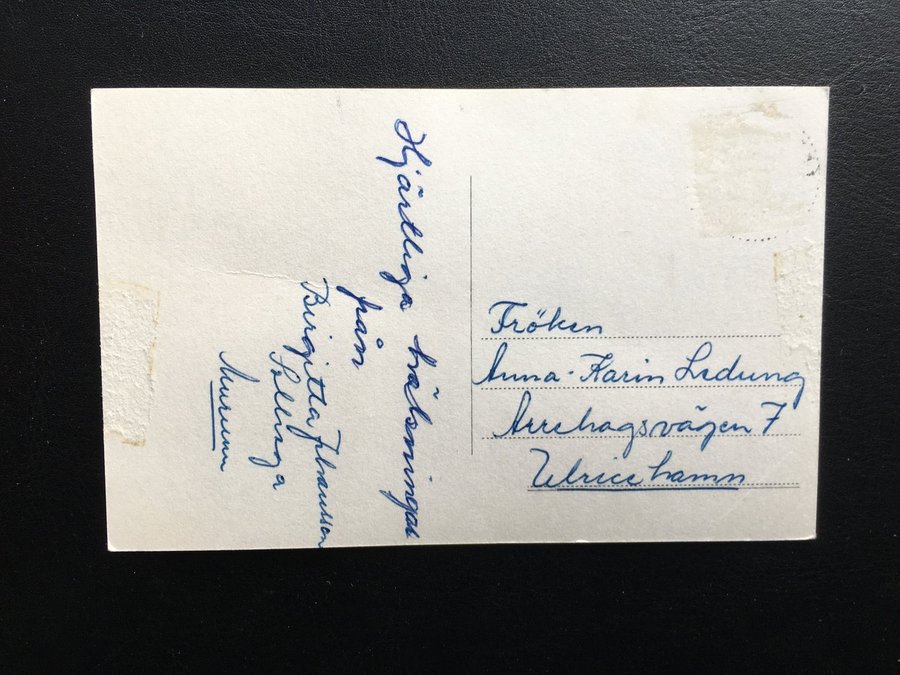 Hjärtliga hälsningar
från
Birgitta Johansson
Murum
Fröken
Anna-Karin Ledung
Arrehagsvägen 7
Ulricehamn